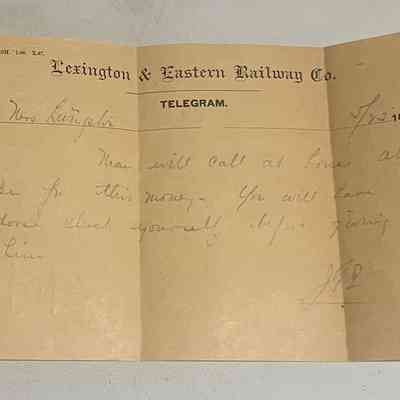 Lexington & Eastern Railway Co.
TELEGRAM.
Mrs Langdon
Man will call at home
for this money. You will have
check yourself before giving
him